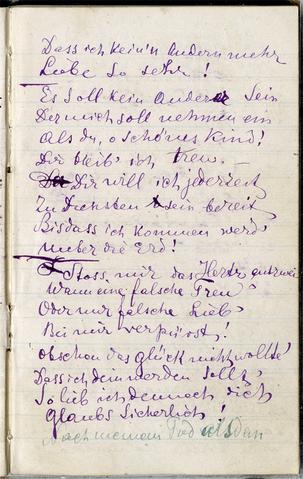 Dass ich kein'n Andern mehr
Liebe so sehr!
Es soll kein Anderer sein
Der mich soll nehmen ein
als du, o schönes Kind!
Dir bleib' ich treu.
Dir will ich jederzeit
Zu Diensten sein bereit
Bis dass ich kommen werd'
unter die Erd!
Stoss mir das Hertz entzwei
Wann eine falsche Treu
Oder nur falsche Lieb
Bei mir verspürst!
obschon das glück nicht wollte
Dass ich dein werden sollt,
So lieb ich dennoch dich
glaubs Sicherlich!
Nach meinem Tod